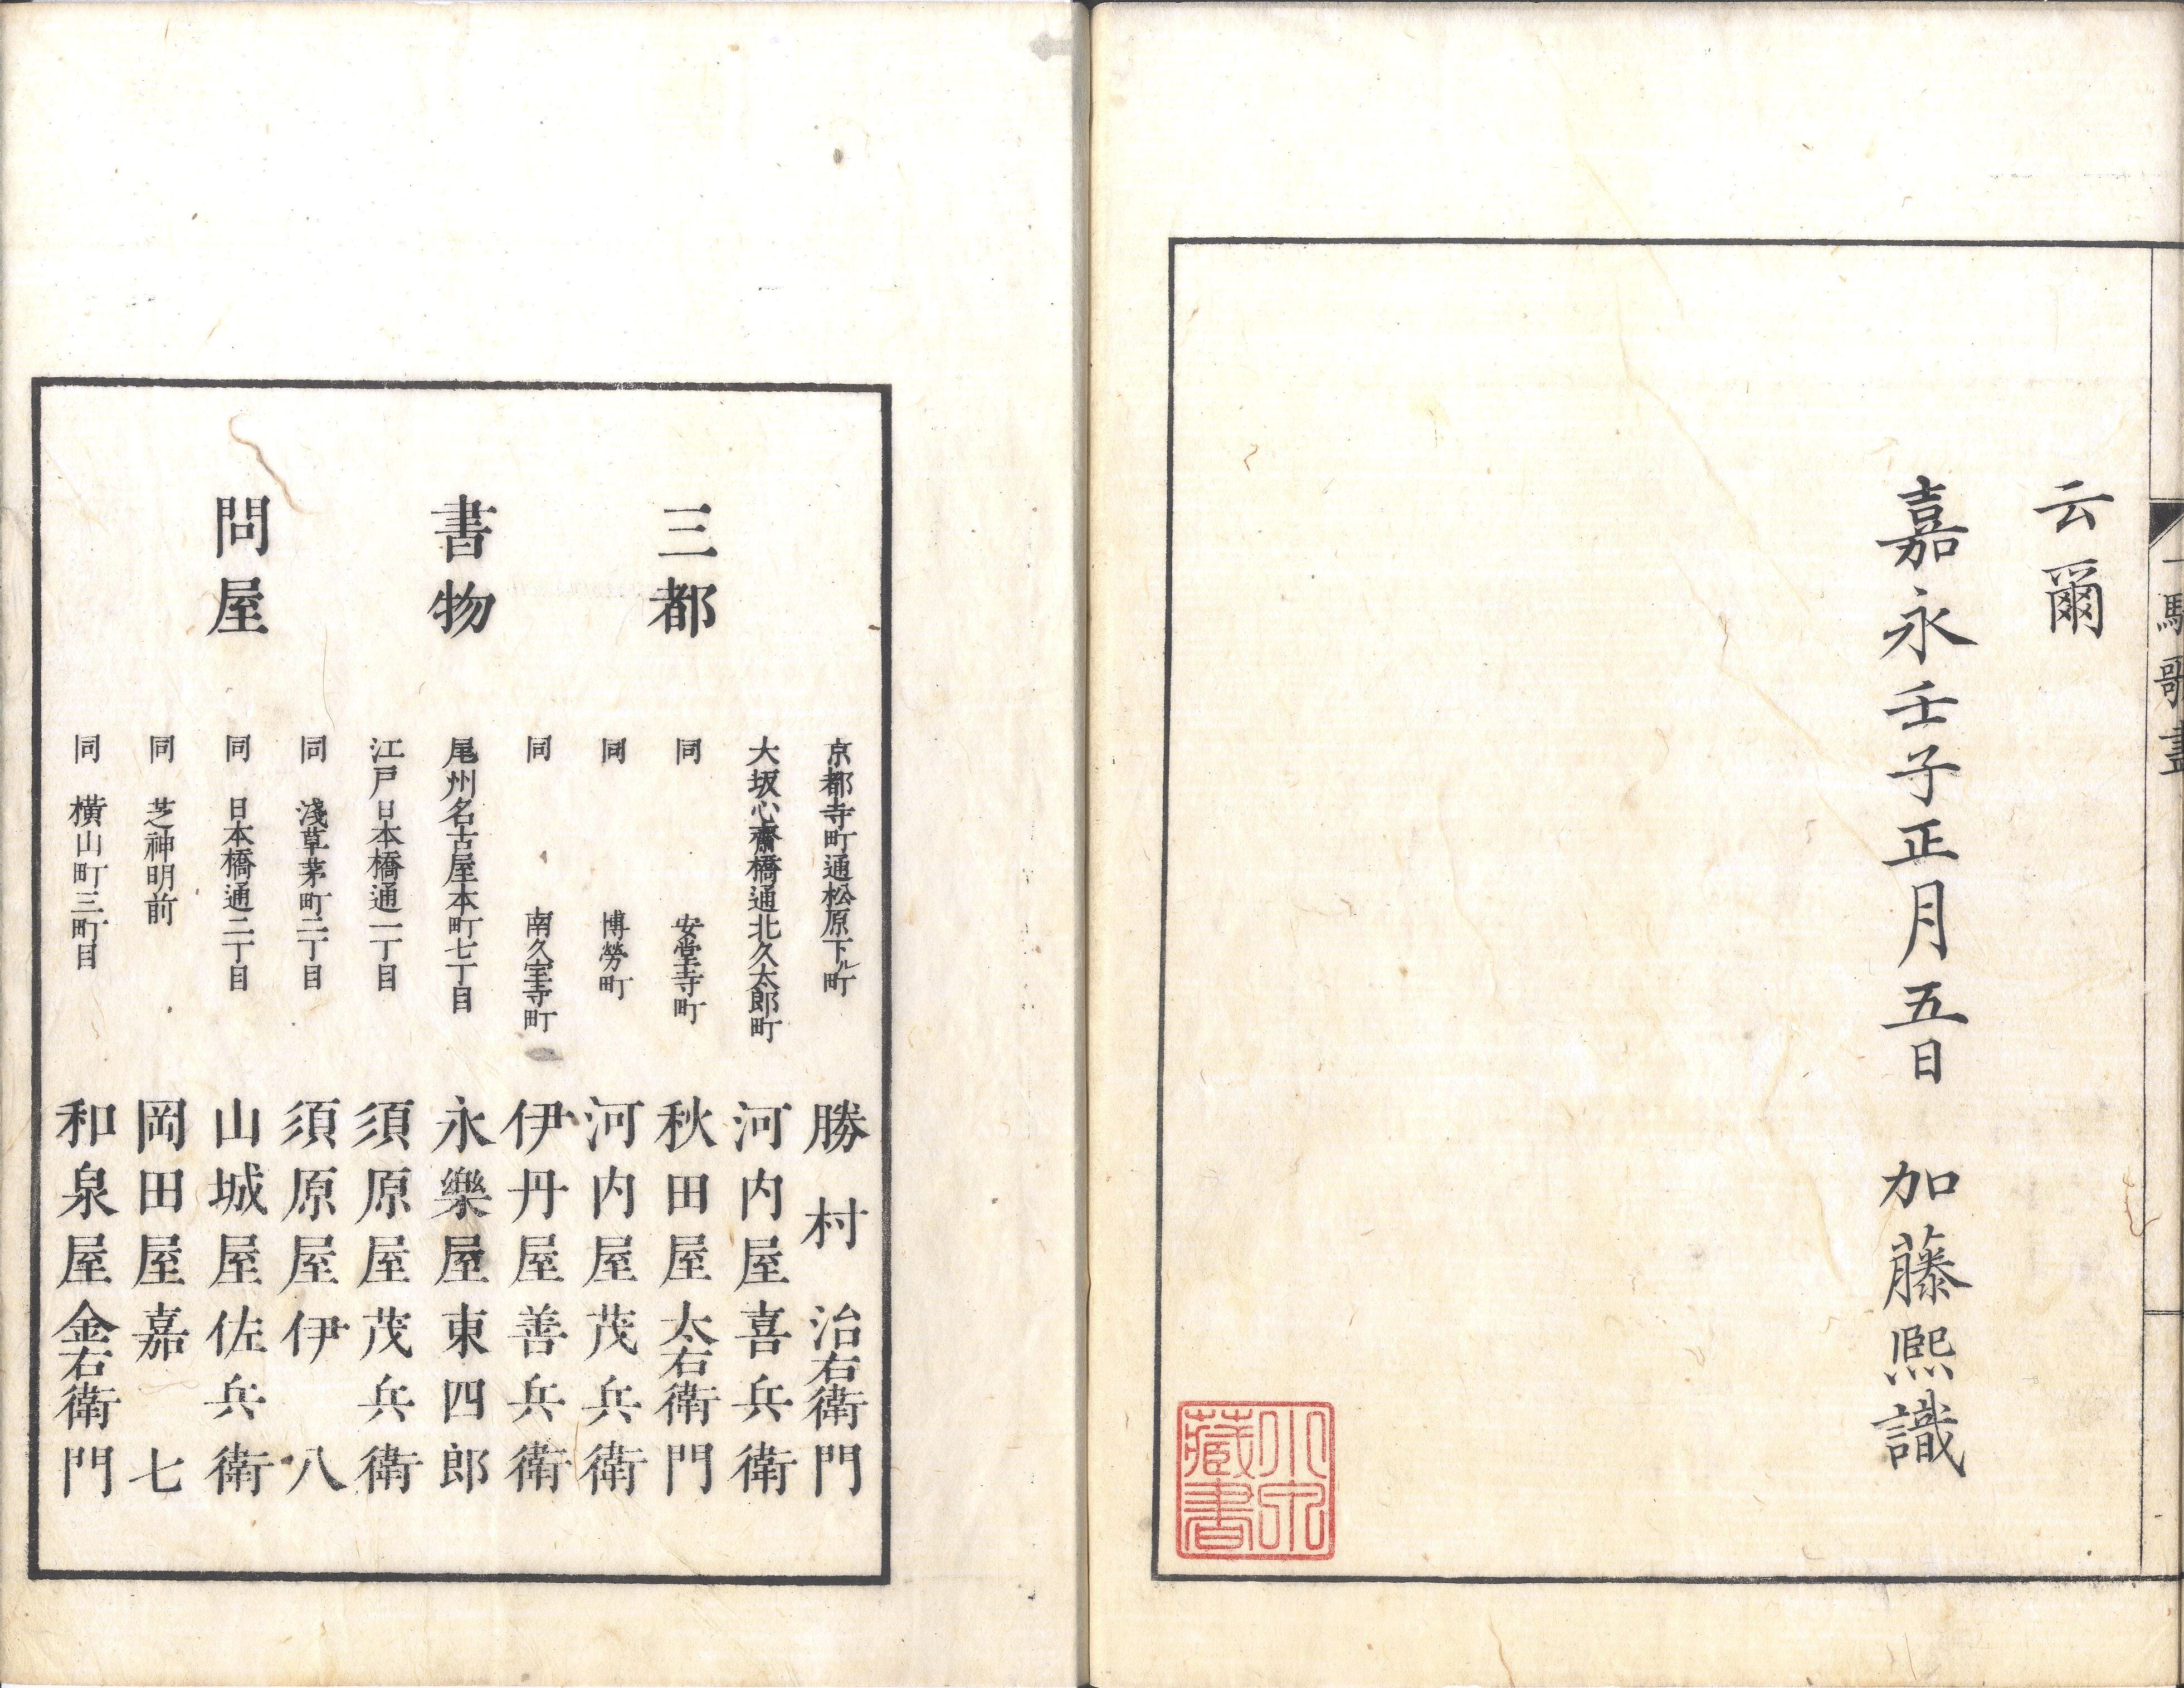 云爾
嘉永壬子正月五日　加藤熙識
三都
書物
問屋
京都寺町通松原下ル町　勝村治右衛門
大坂心齋橋通北久太郎町　河内屋喜兵衛
同　安堂寺町　秋田屋太右衛門
同　博勞町　河内屋茂兵衛
同　南久宝寺町　伊丹屋善兵衛
尾州名古屋本町七丁目　永樂屋東四郎
江戸日本橋通一丁目　須原屋茂兵衛
同　淺草茅町二丁目　須原屋伊八
同　日本橋通二丁目　山城屋佐兵衛
同　芝神明前　岡田屋嘉七
同　横山町三町目　和泉屋金右衛門
藏書